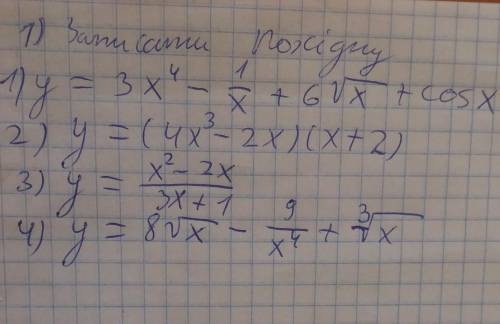 1) Записати похідну
1) y = 3x⁴ - 1/x + 6√x + cosx
2) y = (4x³ - 2x)(x + 2)
3) y = (x² - 2x)/(3x + 1)
4) y = 8√x - 9/x⁴ + ³√x